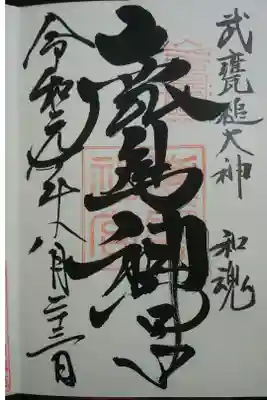 武甕槌大神 和魂
鹿島神宮
令和元年八月二十三日